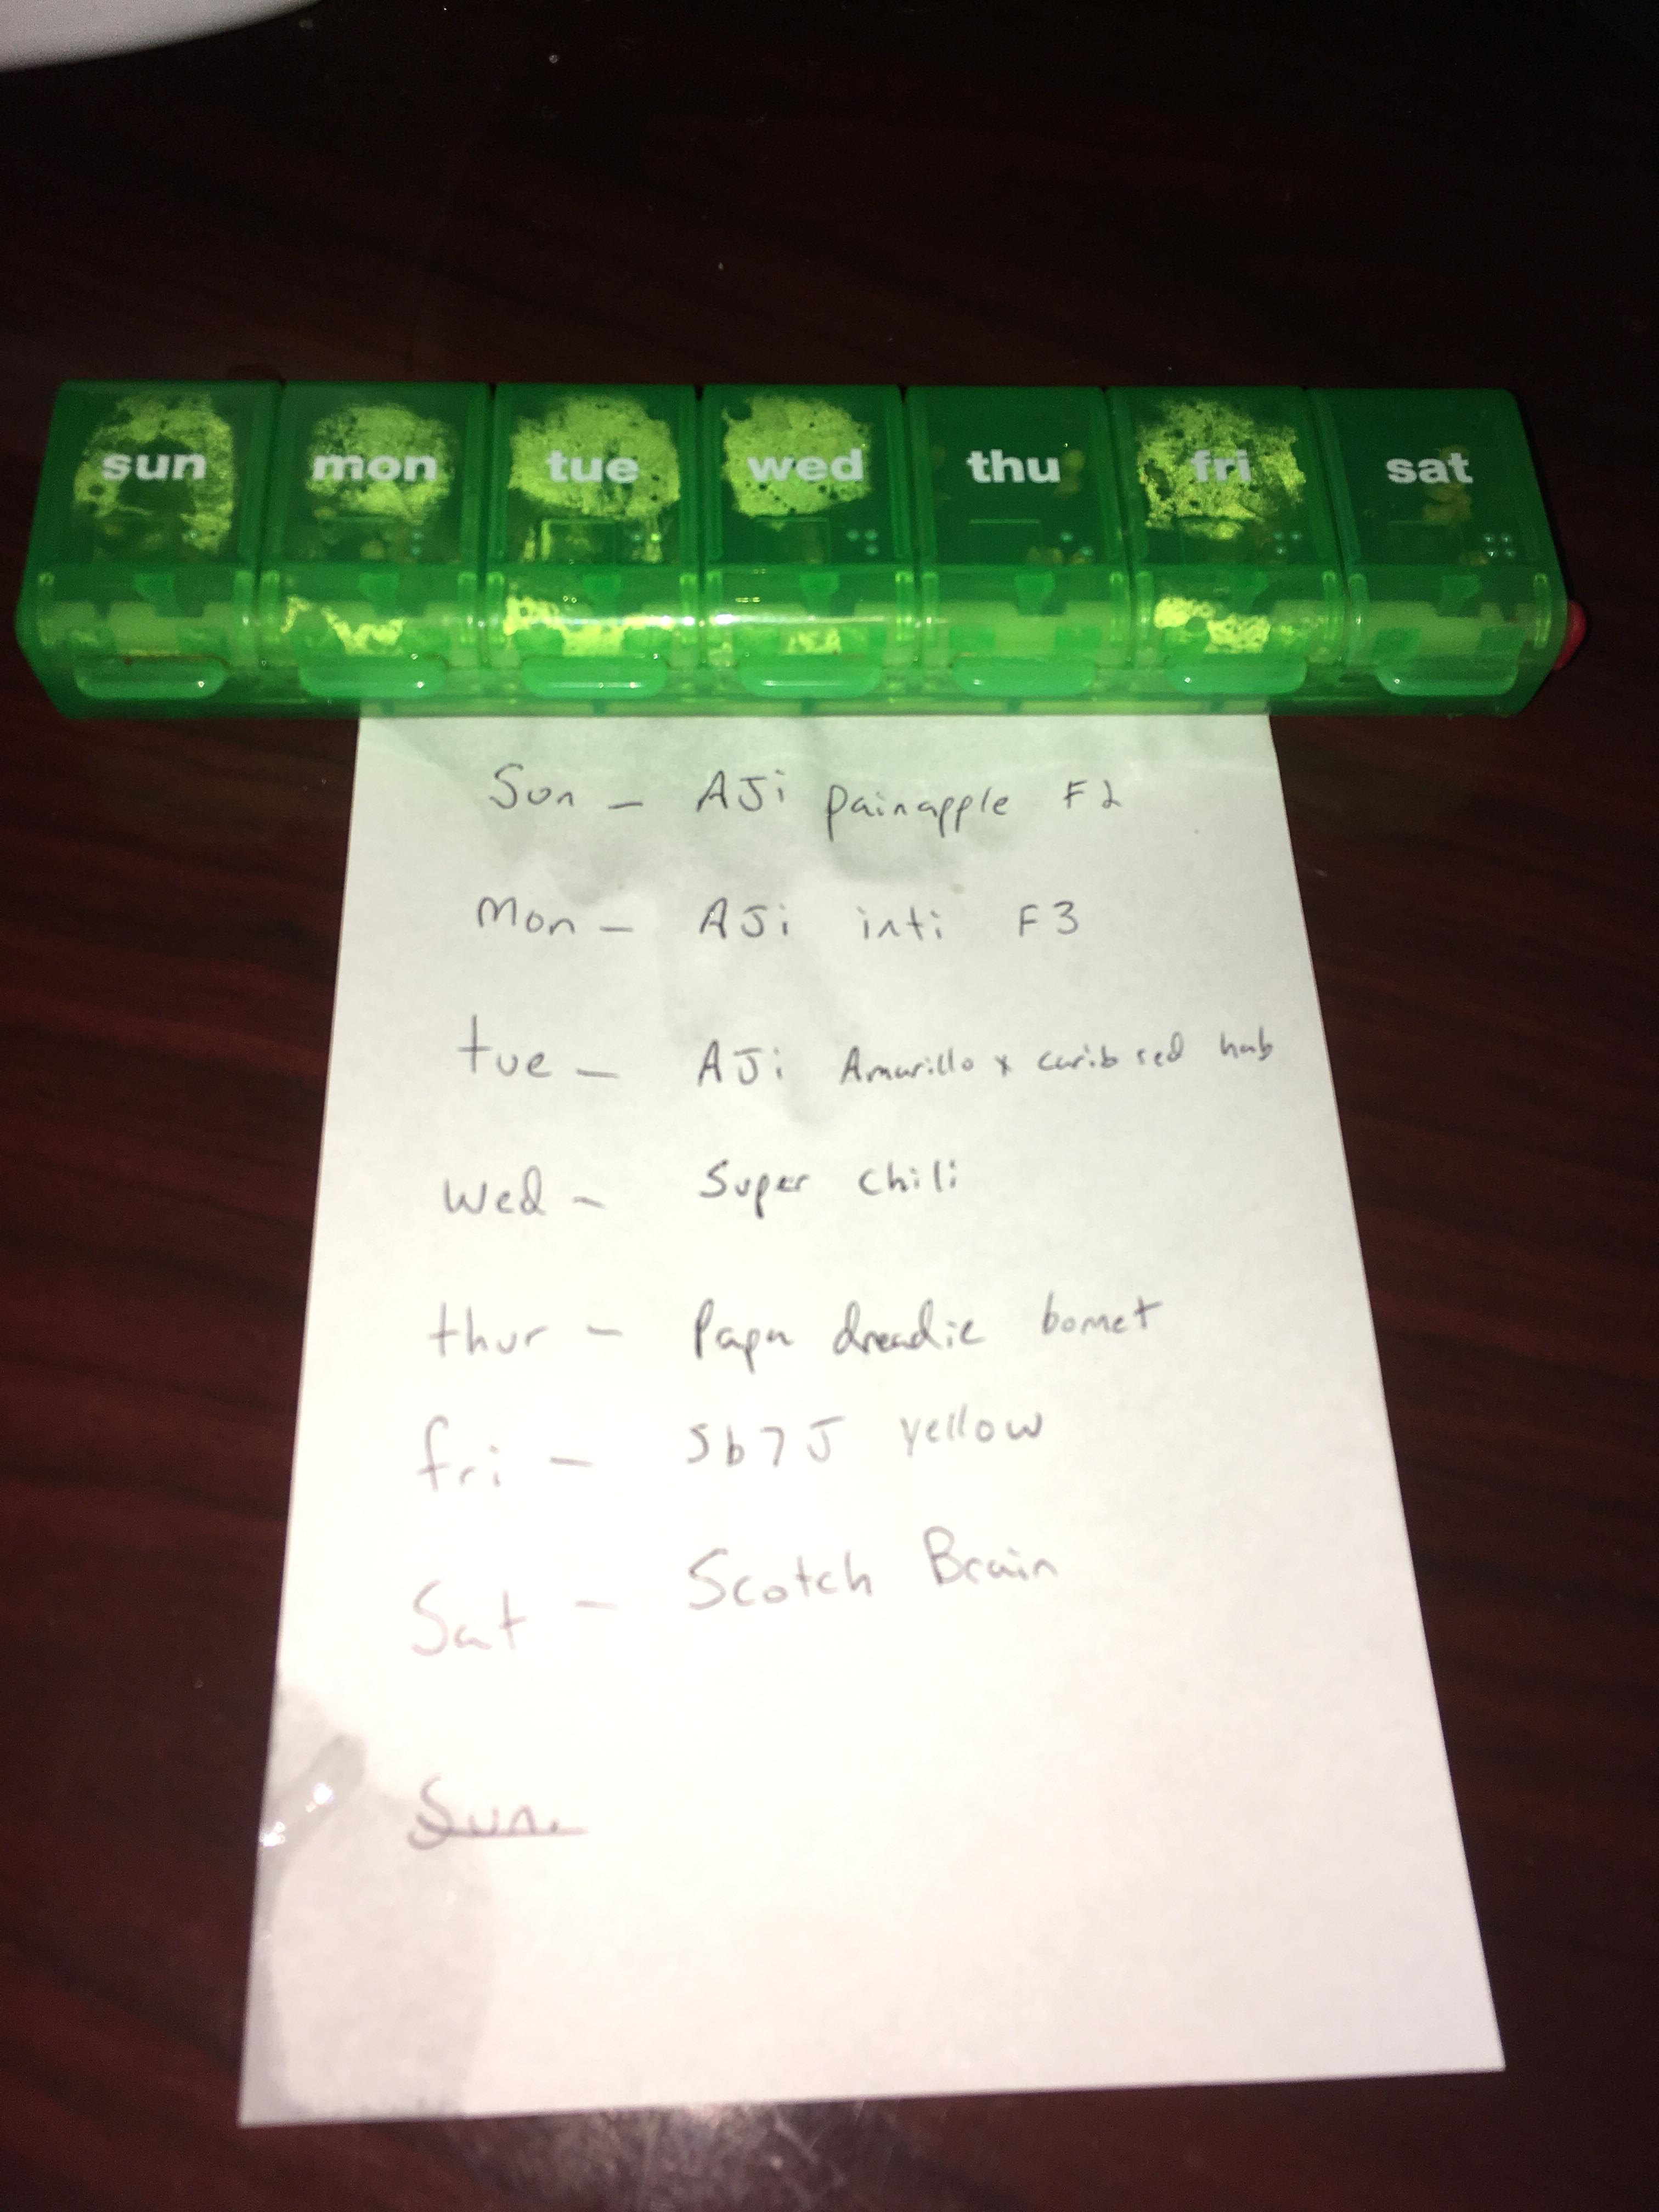 sun mon tue wed thu fri sat
Sun - AJi painapple F2
Mon - AJi inti F3
tue - AJi Amarillo x carib red hab
Wed - Super chili
thur - Papa dreadie bonnet
fri - Sb7J yellow
Sat - Scotch Brain
Sun.